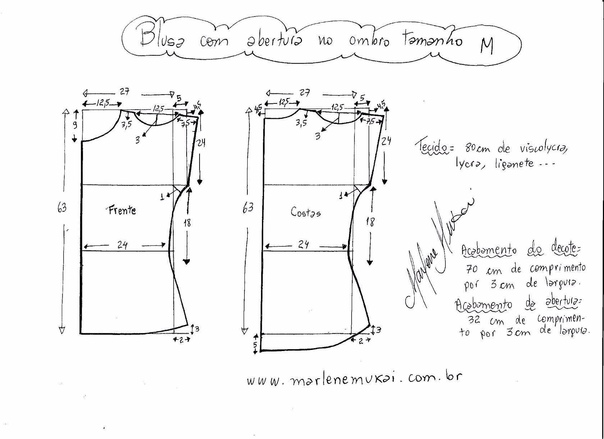 Blusa com abertura no ombro tamanho M
27
5
12,5
12,5
4,5
9
7,5
3
7,5
24
63
Frente
1
18
24
3
2
27
5
4,5
12,5
12,5
4,5
3,5
3
7,5
24
63
Costas
1
18
24
3
2
5
Tecido = 80cm de viscolycra,
lycra, liganete ...
Marlene Mukai
Acabamento do decote=
70 cm de comprimento
por 3 cm de largura.
Acabamento da abertura=
32 cm de comprimen-
to por 3 cm de largura.
www.marlenemukai.com.br